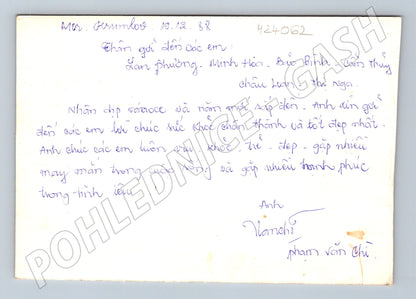 10.12.88
424062
Thân gửi đến các em:
Lan Phương - Minh Hòa - Bảo Định - Văn Thủy
Châu Loan - Thu Nga
Nhân dịp và năm mới sắp đến. Anh xin gửi
đến các em lời chúc sức khỏe chân thành và tốt đẹp nhất.
Anh chúc các em luôn vui khỏe trẻ - đẹp - gặp nhiều
may mắn trong cuộc sống và gặp nhiều hạnh phúc
trong tình yêu
Anh
Phạm Văn Chí
POHLEDNICE - GASH